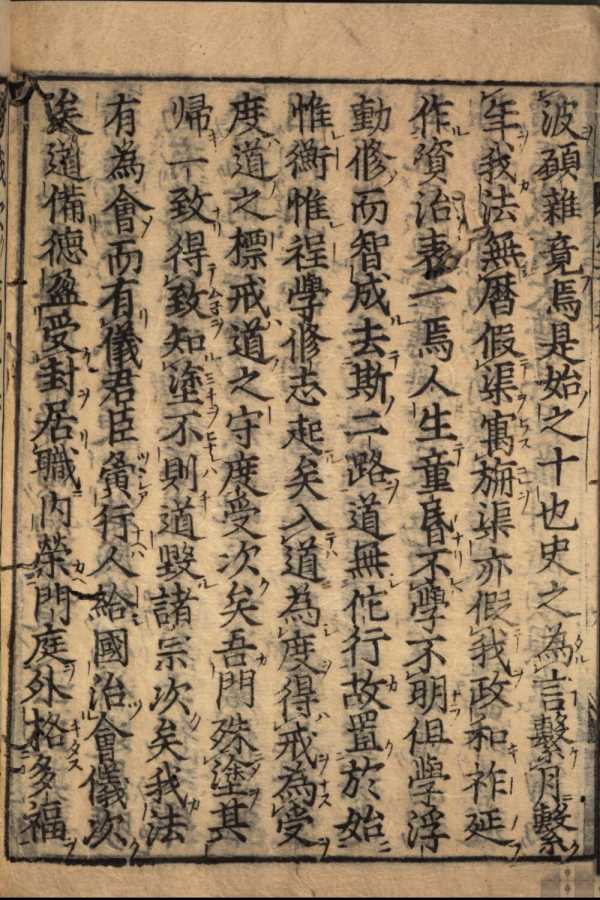 波碩雜竟焉是始之十也史之為言繫月繫
年我法無暦假渠寓施渠亦假我政和祚延
作資治表一焉人生童昏不學不明但學浮
動修而智成去斯二路道無佗行故置於始
惟衡惟程學修志起矣入道為度得戒為受
度道之標戒道之守度受次矣吾門殊塗其
歸一致得致知塗不則道毀諸宗次矣我法
有為會而有儀君臣彝行人給國治會儀次
矣道備德盈受封居職內榮門庭外格多福